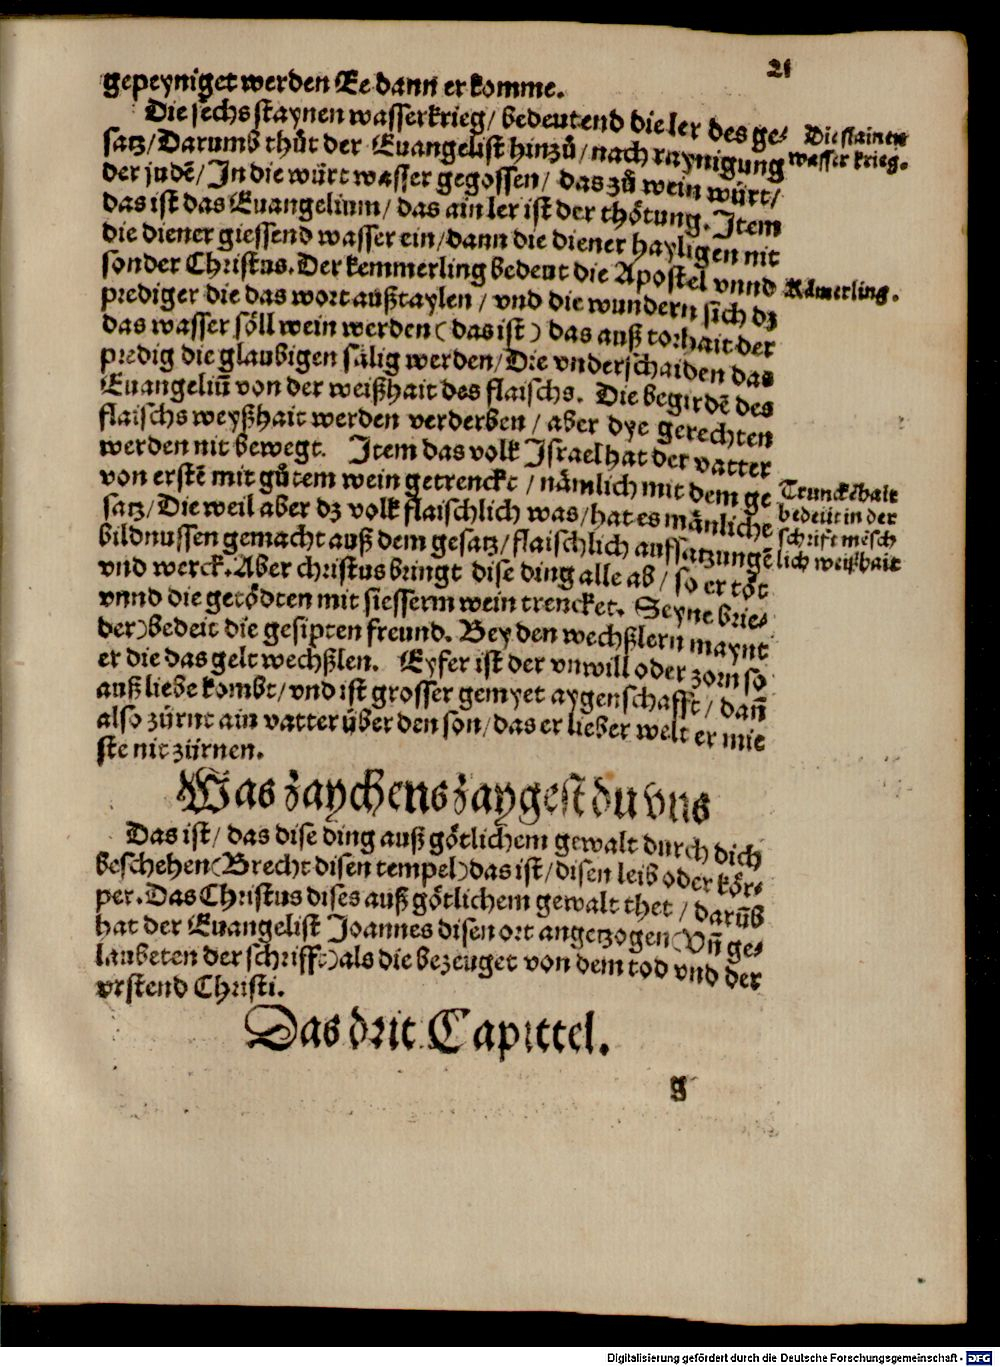 21
gepeyniget werden Ee dann er komme.
Die sechs staynen wasserkrieg/ bedeutend die ler des ge⸗
satz/Darumb thůt der Euangelist hinzů/nach raynigung
der judẽ/In die würt wasser gegossen/ das zů wein würt/
das ist das Euangelium/das ain ler ist der thötung. Item
die diener giessend wasser ein/dann die diener hayligen nit
sonder Christus. Der kemmerling bedeut die Apostel vnnd
prediger die das wort außtaylen/ vnd die wundern sich dz
das wasser söll wein werden(das ist) das auß torhait der
predig die glaubigen sälig werden/Die vnderschaiden das
Euangeliũ von der weißhait des flaischs. Die begirdẽ des
flaischs weyßhait werden verderben/ aber dye gerechten
werden nit bewegt. Item das volk Israel hat der vatter
von erstẽ mit gůtem wein getrenckt/nämlich mit dem ge
satz/Die weil aber dz volk flaischlich was/hat es mänliche
bildnussen gemacht auß dem gesatz/flaischlich auffsatzungẽ
vnd werck. Aber christus bringt dise ding alle ab/ so er töt
vnnd die getödten mit siesserm wein trencket. Seyne brie⸗
der)bedeit die gesipten freund. Bey den wechßlern maynt
er die das gelt wechßlen. Eyfer ist der vnwill oder zorn so
auß liebe kombt/vnd ist grosser gemyet aygenschafft/ dañ
also zürnt ain vatter über den son/das er lieber welt er mie
ste nit zürnen.
Was zaychens zaygest du vns
Das ist/ das dise ding auß götlichem gewalt durch dich
beschehen(Brecht disen tempel)das ist/disen leib oder kör⸗
per. Das Christus dises auß götlichem gewalt thet/ darũb
hat der Euangelist Joannes disen ort angetzogen(Vñ ge⸗
laubeten der schrifft)als die bezeuget von dem tod vnd der
vrstend Christi.
Das drit Capittel.
g
Die stainen
wasser krieg.
Kämerling.
Trunckẽhait
bedeüt in der
schrift mẽsch
lich weißhait
Digitalisierung gefördert durch die Deutsche Forschungsgemeinschaft - DFG